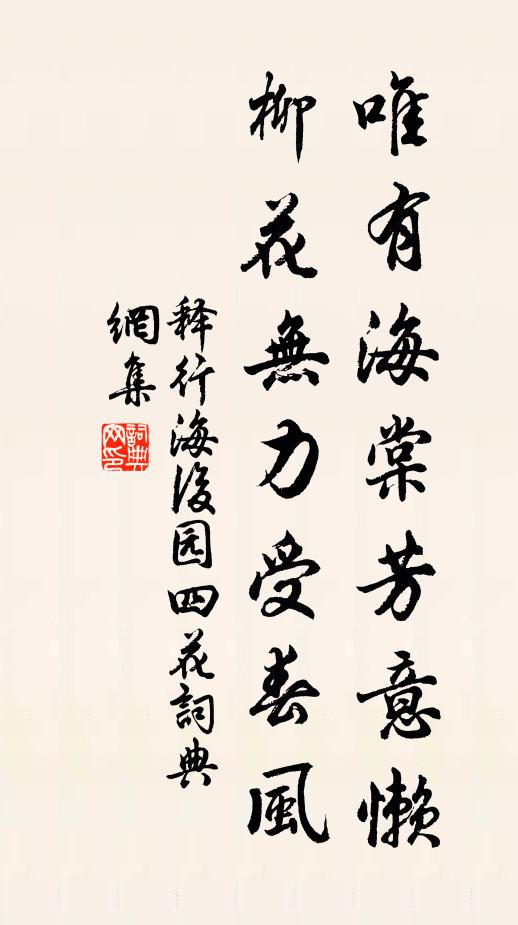 唯有海棠芳意懒
柳花無力受春風
释行海後园四花詞典
網集
詞典網印